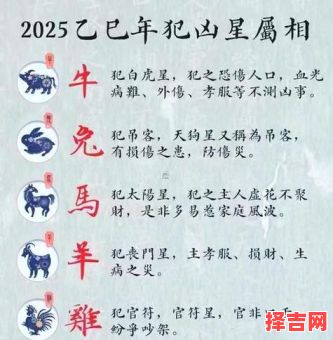 2025乙巳年犯凶星屬相
牛
犯白虎星,犯之恐傷人口,血光
病難、外傷、孝服等不測凶事。
兔
犯吊客,天狗星又稱為吊客,
有損傷之患,防傷災。
馬
犯太陽星,犯之主人虛花不聚
財,是非多易惹家庭風波。
羊
犯喪門星,主孝服、損財、生
病之災。
雞
犯官符,官符星,官非
紛爭吵架。
择吉网